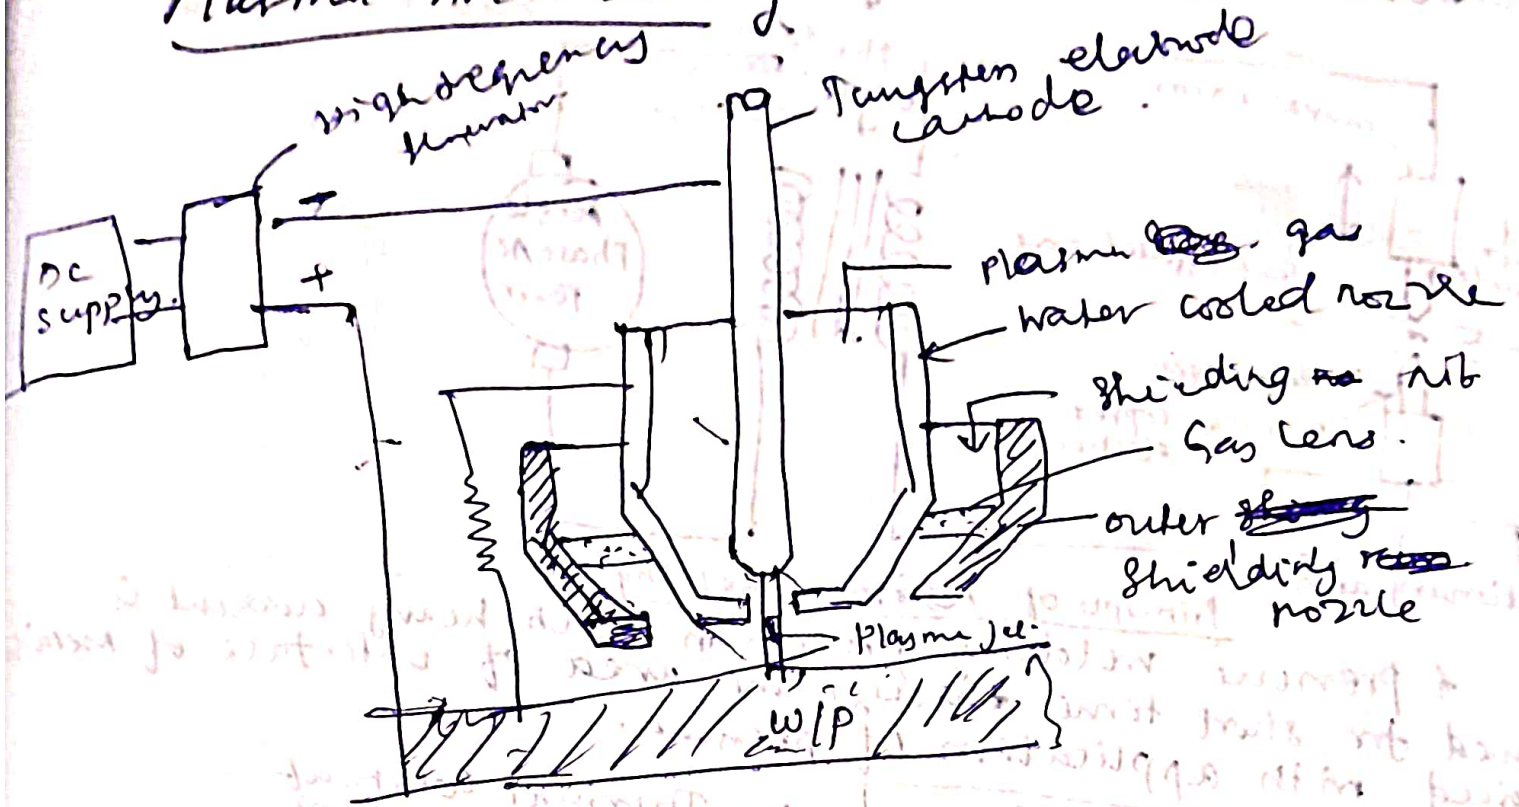 Plasma
High frequency
generator
Tungsten electrode
cathode.
-
+
DC
supply.
plasma gas
water cooled nozzle
Gas lens.
outer
Shielding
nozzle
Plasma jet
W/P